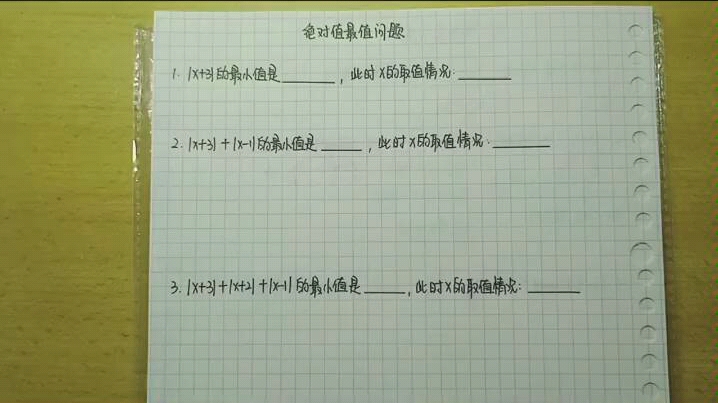 绝对值最值问题
1. |x+3|的最小值是____，此时x的取值情况：____
2. |x+3|+|x-1|的最小值是____，此时x的取值情况：____
3. |x+3|+|x+2|+|x-1|的最小值是____，此时x的取值情况：____